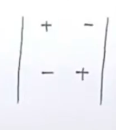 | + − |
| − + |